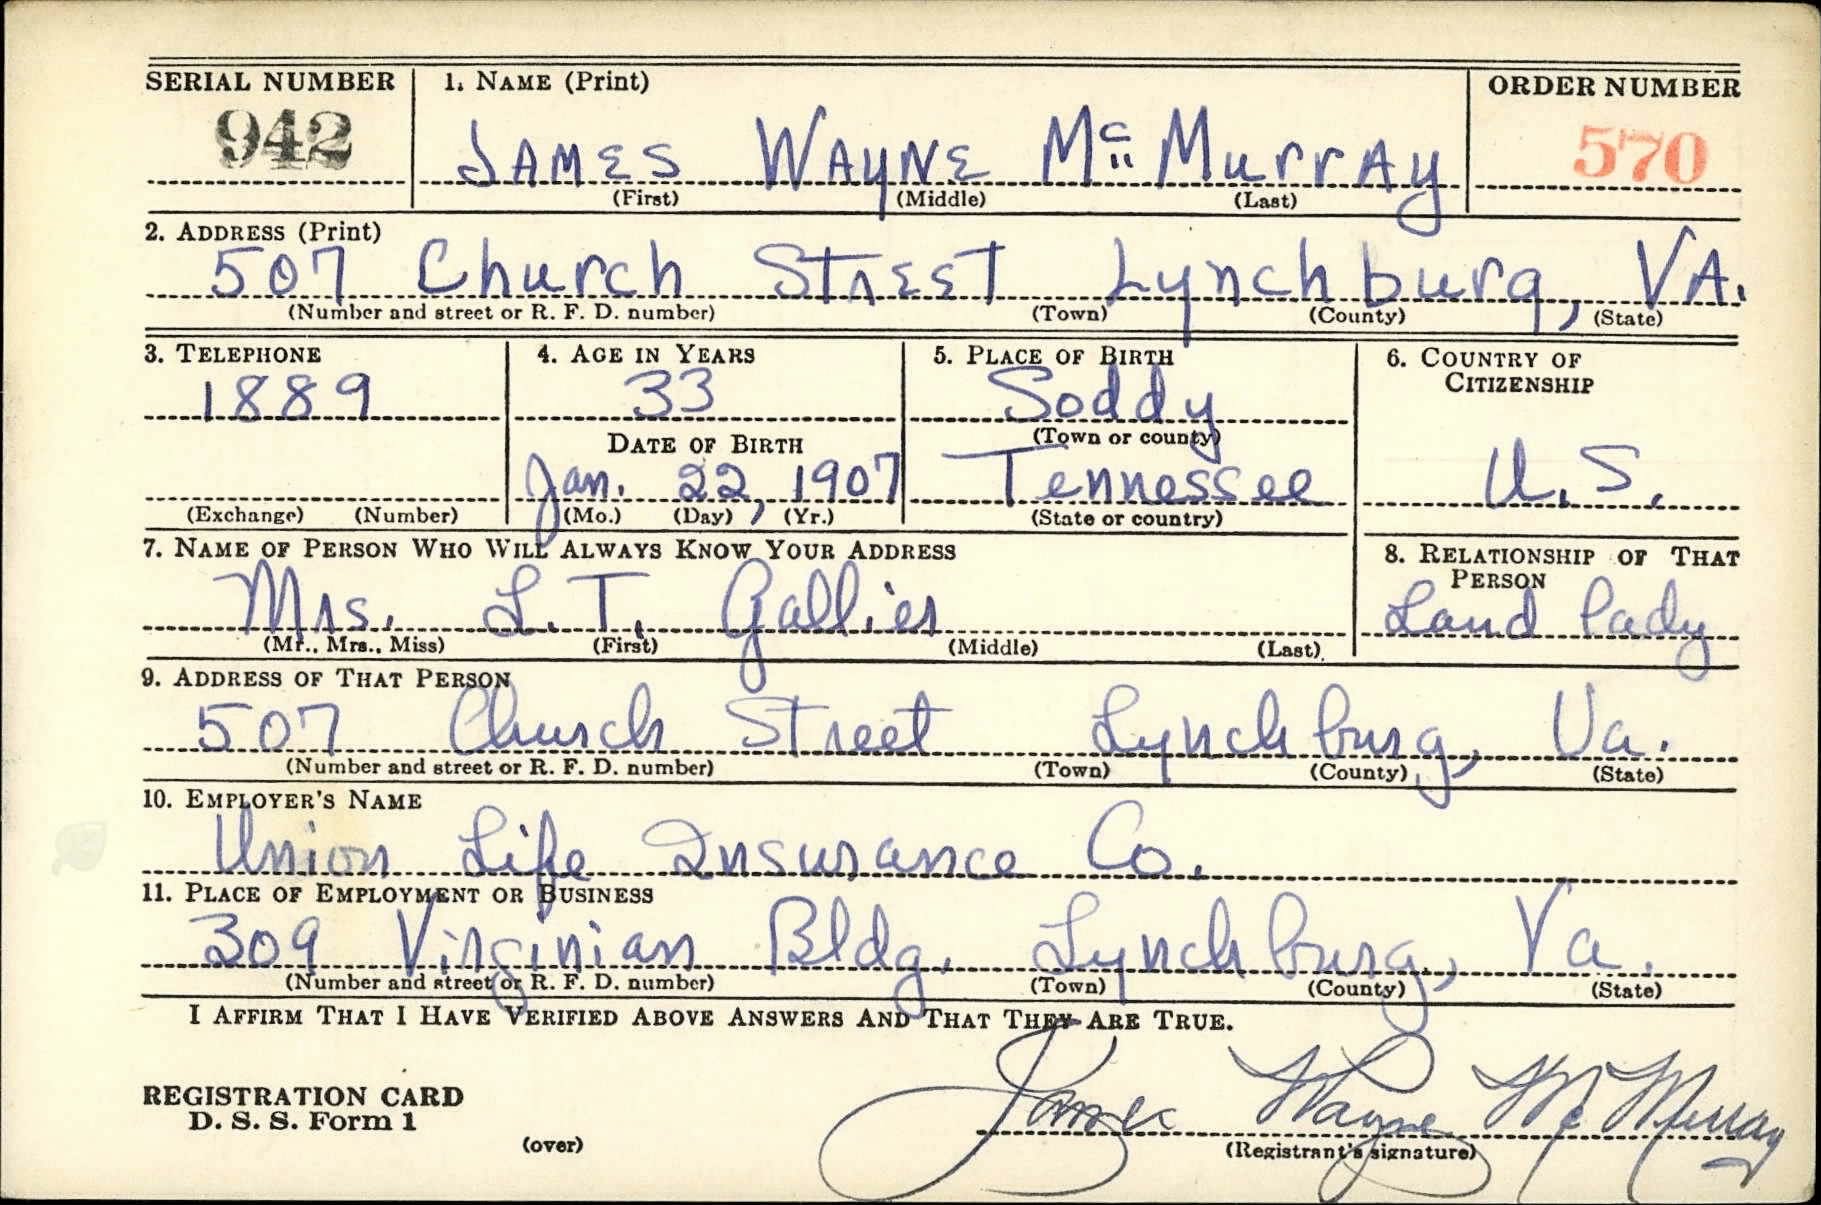 SERIAL NUMBER 1. NAME (Print) ORDER NUMBER
942 JAMES WAYNE McMURRAY 570
(First) (Middle) (Last)
2. ADDRESS (Print)
507 Church Street Lynchburg, VA.
(Number and street or R. F. D. number) (Town) (County) (State)
3. TELEPHONE 4. AGE IN YEARS 5. PLACE OF BIRTH 6. COUNTRY OF
CITIZENSHIP
1889 33 Soddy
DATE OF BIRTH (Town or county)
Jan. 22, 1907 Tennessee U.S.
(Exchange) (Number) (Mo.) (Day) (Yr.) (State or country)
7. NAME OF PERSON WHO WILL ALWAYS KNOW YOUR ADDRESS 8. RELATIONSHIP OF THAT
PERSON
Mrs. L. T. Gallier Land lady
(Mr., Mrs., Miss) (First) (Middle) (Last)
9. ADDRESS OF THAT PERSON
507 Church Street Lynchburg, Va.
(Number and street or R. F. D. number) (Town) (County) (State)
10. EMPLOYER'S NAME
Union Life Insurance Co.
11. PLACE OF EMPLOYMENT OR BUSINESS
309 Virginian Bldg. Lynchburg, Va.
(Number and street or R. F. D. number) (Town) (County) (State)
I AFFIRM THAT I HAVE VERIFIED ABOVE ANSWERS AND THAT THEY ARE TRUE.
REGISTRATION CARD
D. S. S. Form 1 James Wayne McMurray
(over) (Registrant's signature)